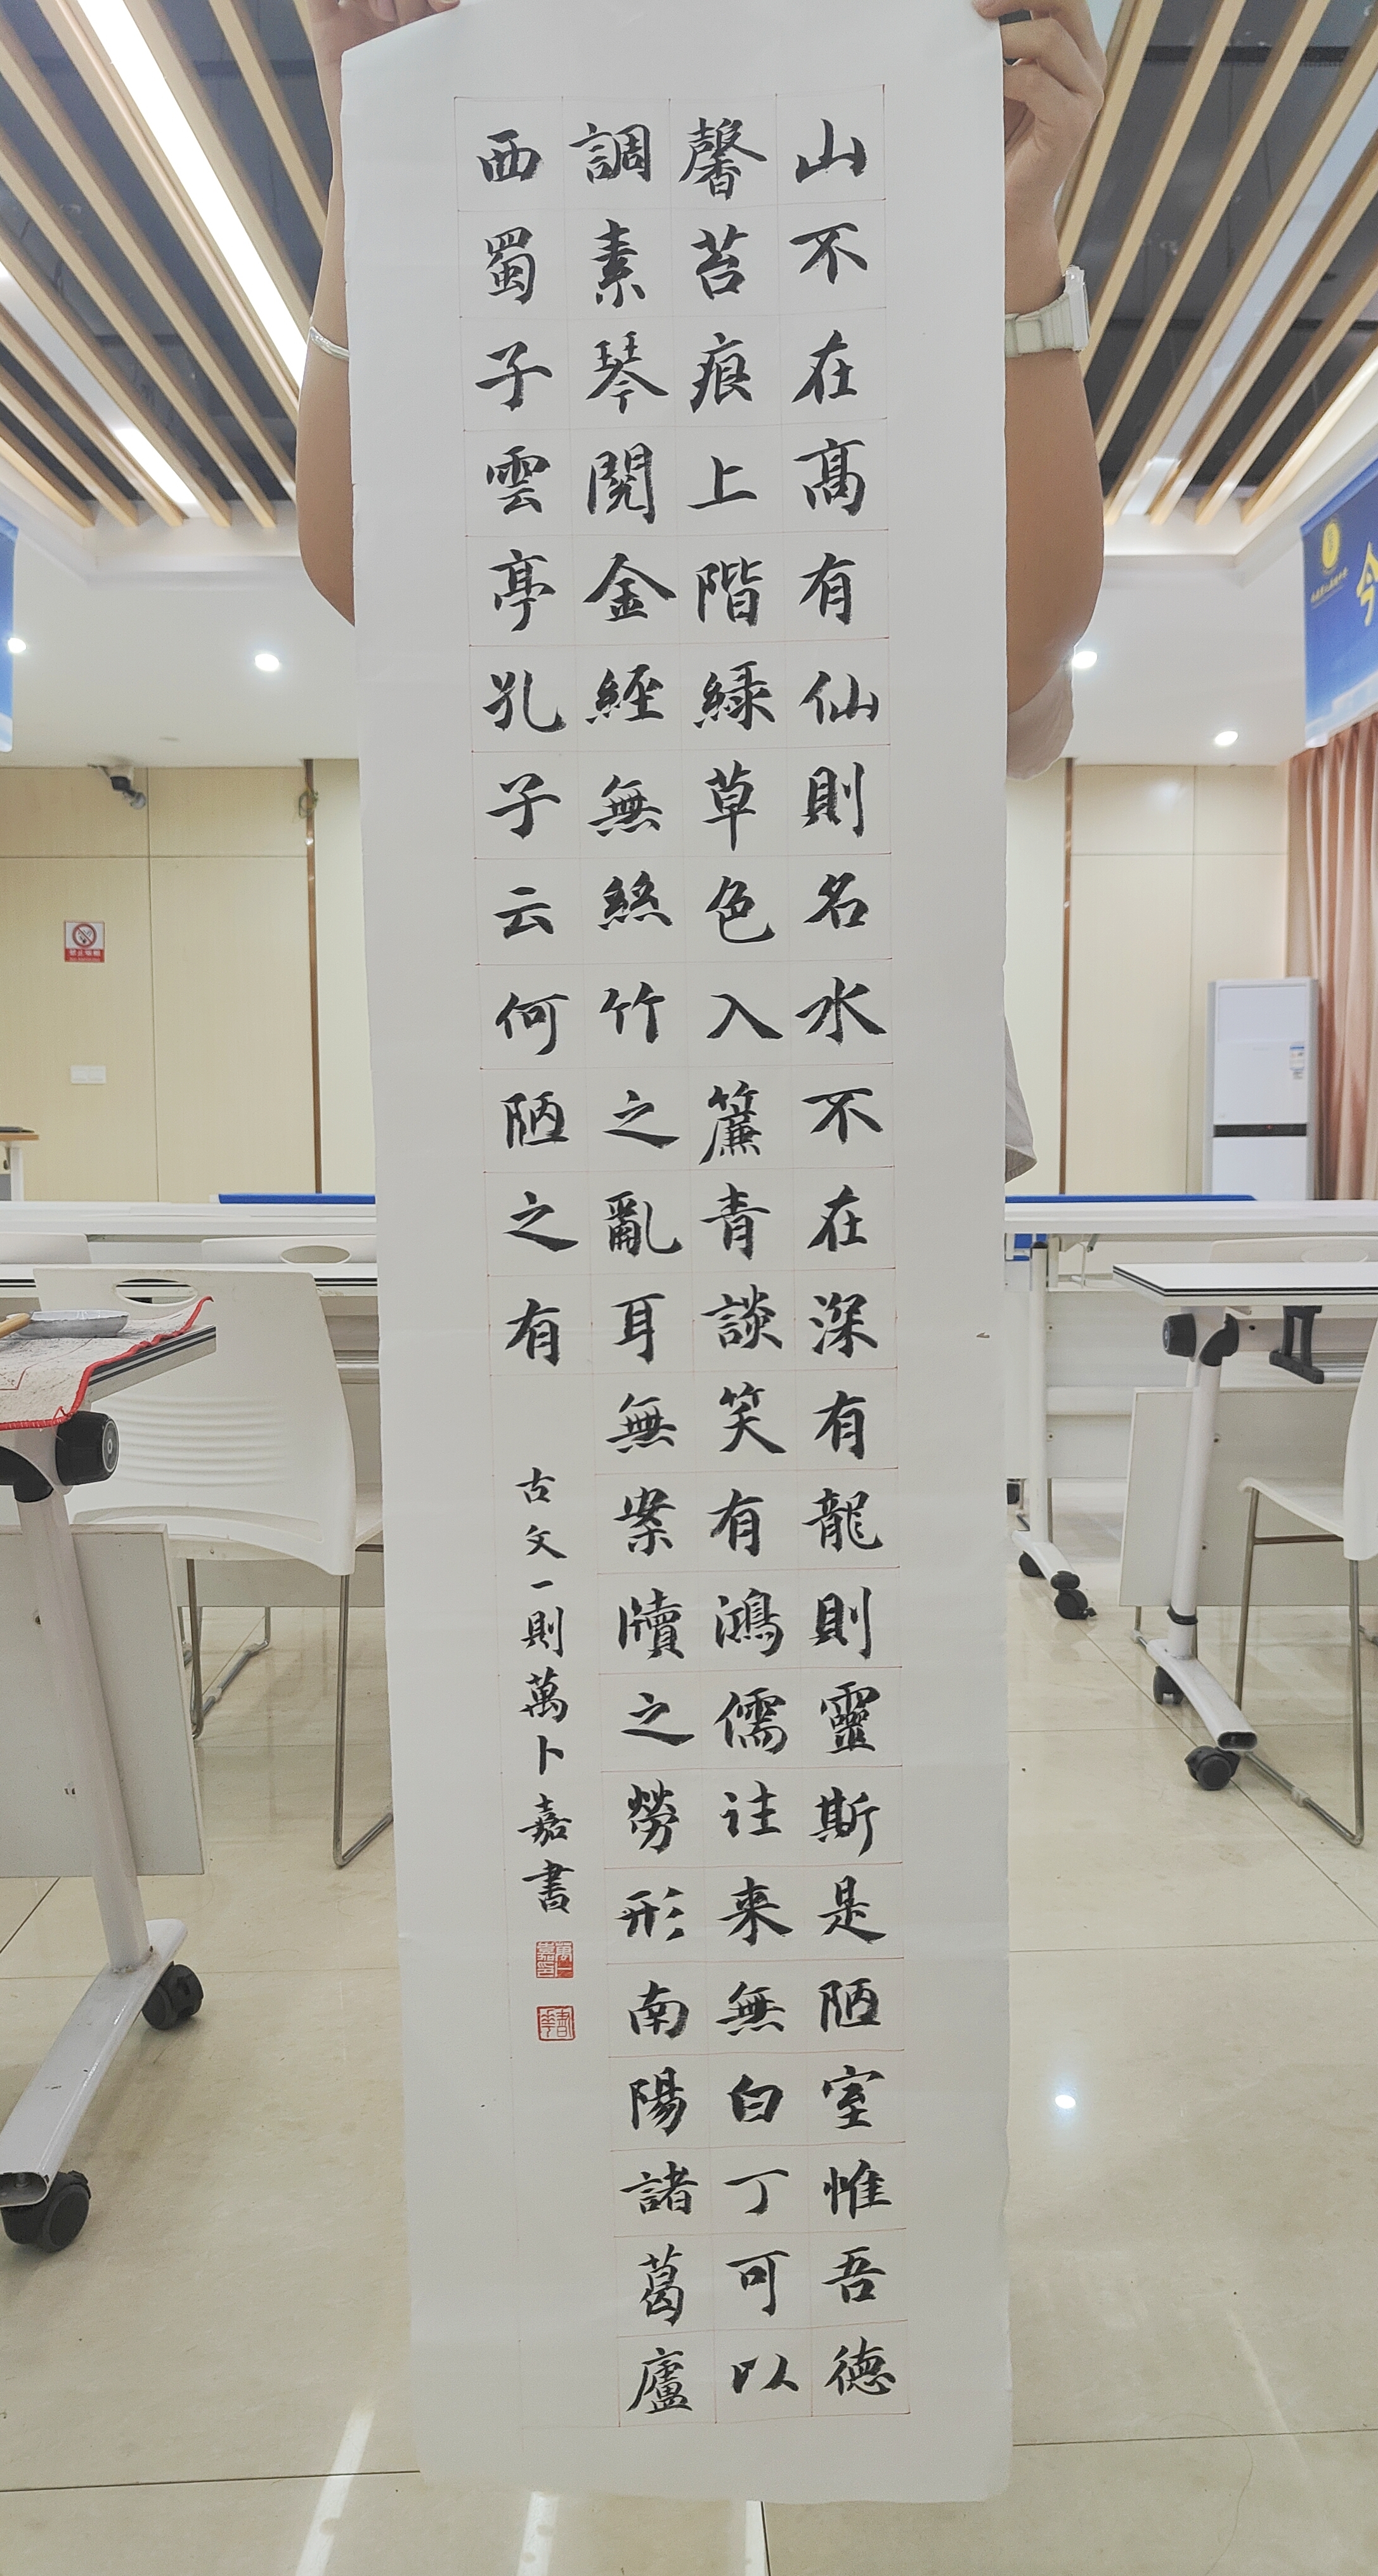 山不在髙有仙則名水不在深有龍則靈斯是陋室惟吾德
馨苔痕上階緑草色入簾青談笑有鴻儒往来無白丁可以
調素琴閱金經無絲竹之亂耳無案牘之勞形南陽諸葛廬
西蜀子雲亭孔子云何陋之有
古文一則萬卜嘉書
萬卜嘉印
今